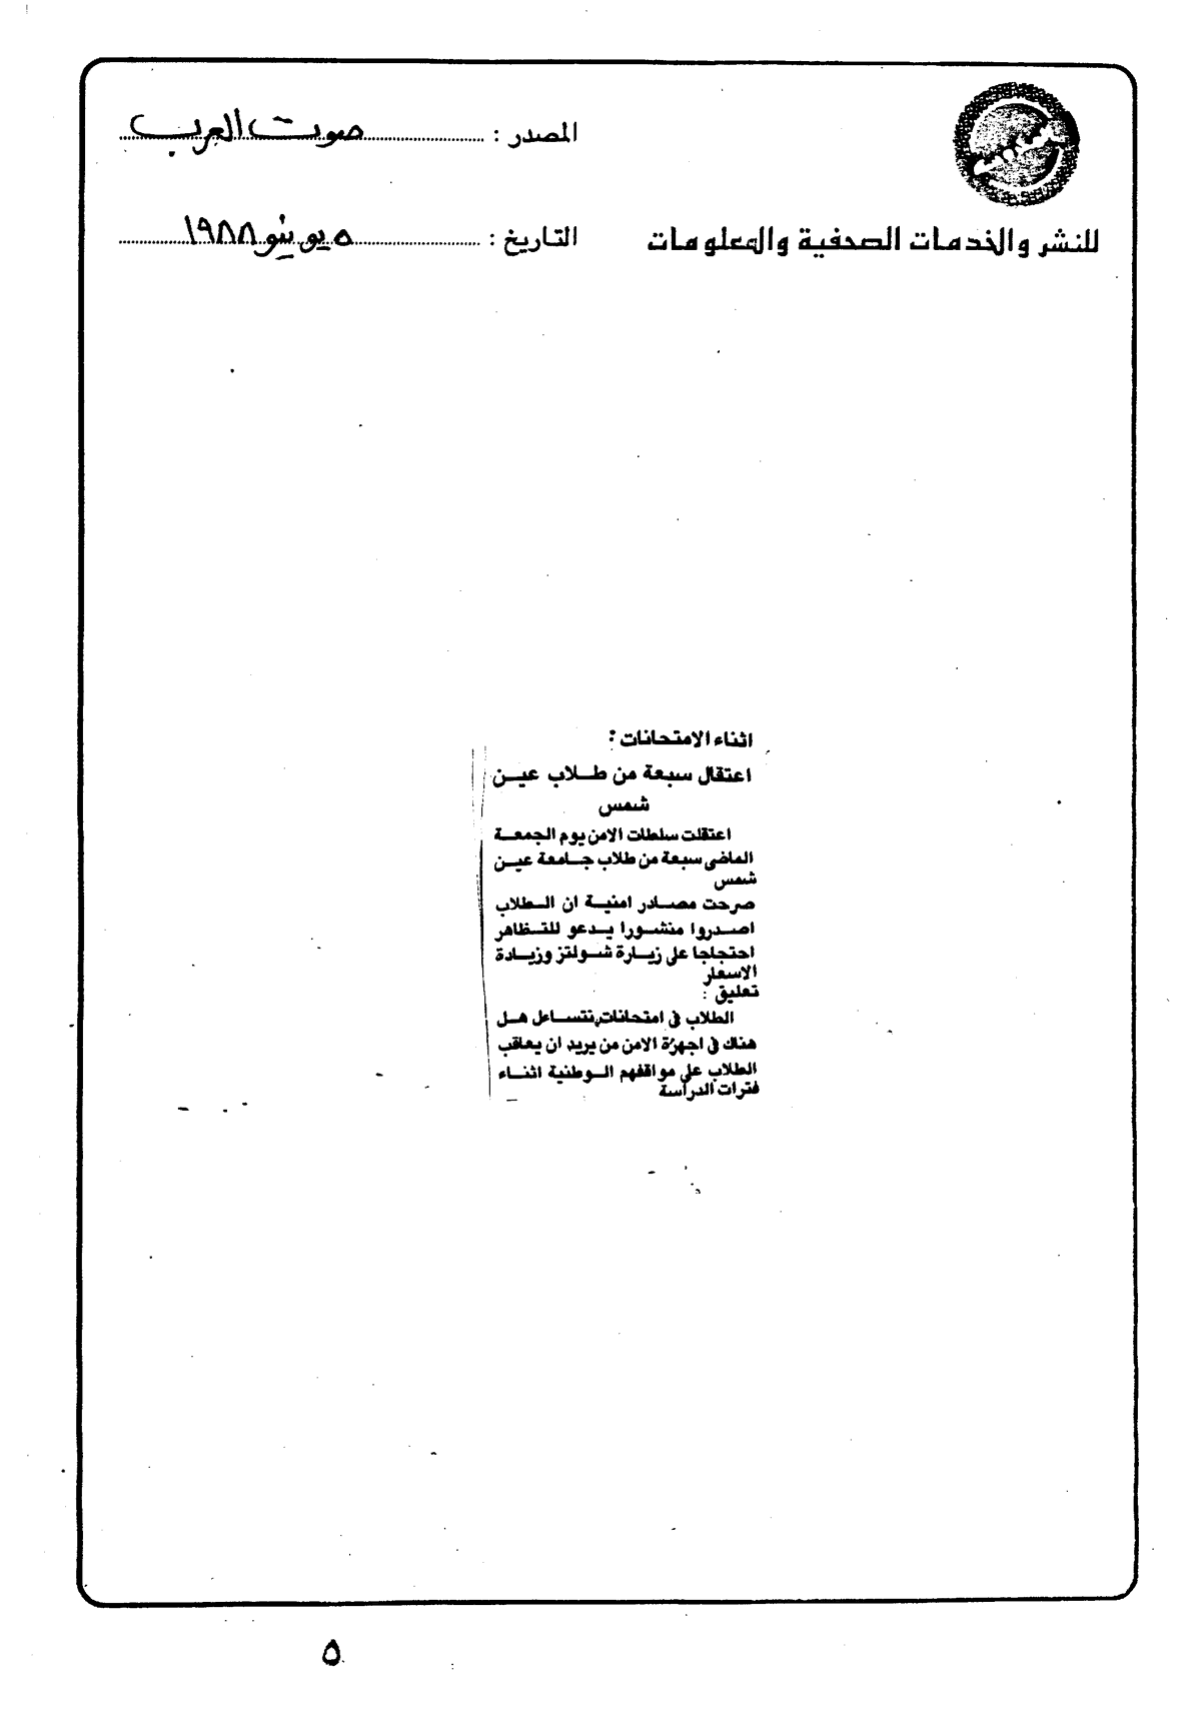 المصدر : صوت العرب
للنشر والخدمات الصحفية والمعلومات
التاريخ : ٥ يونيو ١٩٨٨
اثناء الامتحانات :
اعتقال سبعة من طلاب عين
شمس
اعتقلت سلطات الامن يوم الجمعة
الماضى سبعة من طلاب جامعة عين
شمس
صرحت مصادر امنية ان الطلاب
اصدروا منشورا يدعو للتظاهر
احتجاجا على زيارة شولتز وزيادة
الاسعار
تعليق :
الطلاب فى امتحانات، نتساءل هل
هناك فى اجهزة الامن من يريد ان يعاقب
الطلاب على مواقفهم الوطنية اثناء
فترات الدراسة
٥